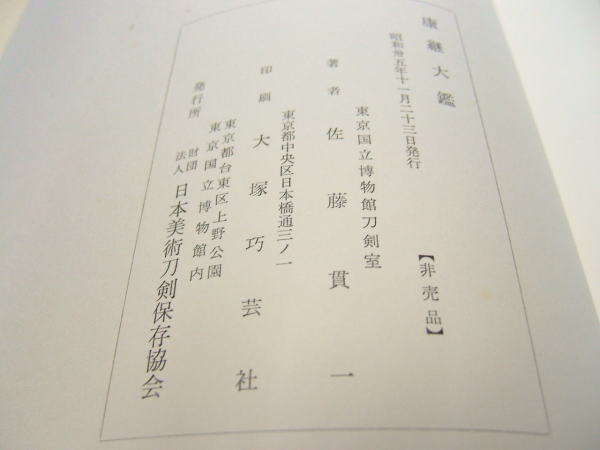 康継大鑑
昭和卅五年十一月二十三日発行
【非売品】
東京国立博物館刀剣室
著者 佐藤貫一
東京都中央区日本橋通三ノ一
印刷 大塚巧芸社
東京都台東区上野公園
東京国立博物館内
発行所 財団法人 日本美術刀剣保存協会